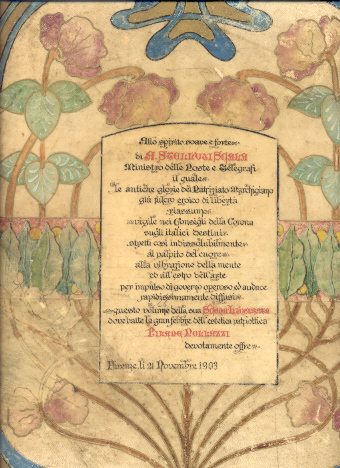 Allo spirito soave e forte
di A. Stelluti Scala
Ministro delle Poste e Telegrafi
il quale
le antiche glorie del Patriziato Marchigiano
già fulcro eroico di libertà
riassume
vigile nei Consigli della Corona
sugli italici destini
stretti così indissolubilmente
ai palpiti del cuore
alla vibrazione della mente
ed all'estro dell'arte
per impulso di governo operoso ed audace
rapidissimamente diffusi
questo volume della sua
dove batte la gran febbre dell'estetica patriottica
devotamente offre
Firenze, li 21 Novembre 1903